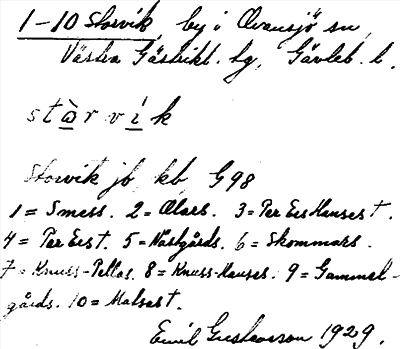 1-10 Storvik, by i Ovansjö sn,
Västra Gästrikl. hg, Gävleb. l.
stàrvik
Storvik jb, kb, G98
1 = Smess. 2 = Olars. 3 = Per Ers Hanses †.
4 = Per Ers †. 5 = Nästgårds. 6 = Skommars.
7 = Knuss-Pellas. 8 = Knuss-Hanses. 9 = Gammel-
gårds. 10 = Malses †.
Emil Gustavsson 1929.